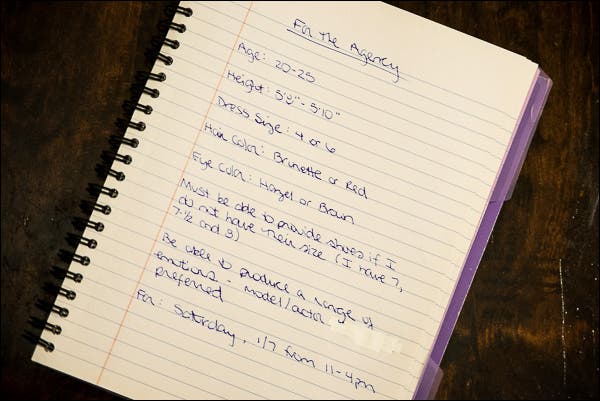 For the Agency
Age: 20-25
Height: 5'9"-5'10"
Dress Size: 4 or 6
Hair Color: Brunette or Red
Eye Color: Hazel or Brown
Must be able to provide shoes if I
do not have their size (I have 7,
7 1/2 and 9)
Be able to produce a range of
emotions - model/actor
preferred
For: Saturday, 1/7 from 11-4pm